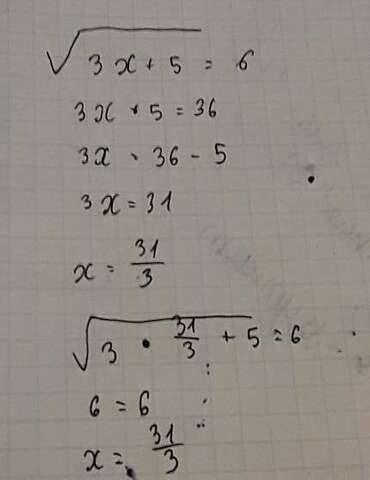 √3x + 5 = 6
3x + 5 = 36
3x = 36 - 5
3x = 31
x = 31/3
√3 • 31/3 + 5 = 6
6 = 6
x = 31/3